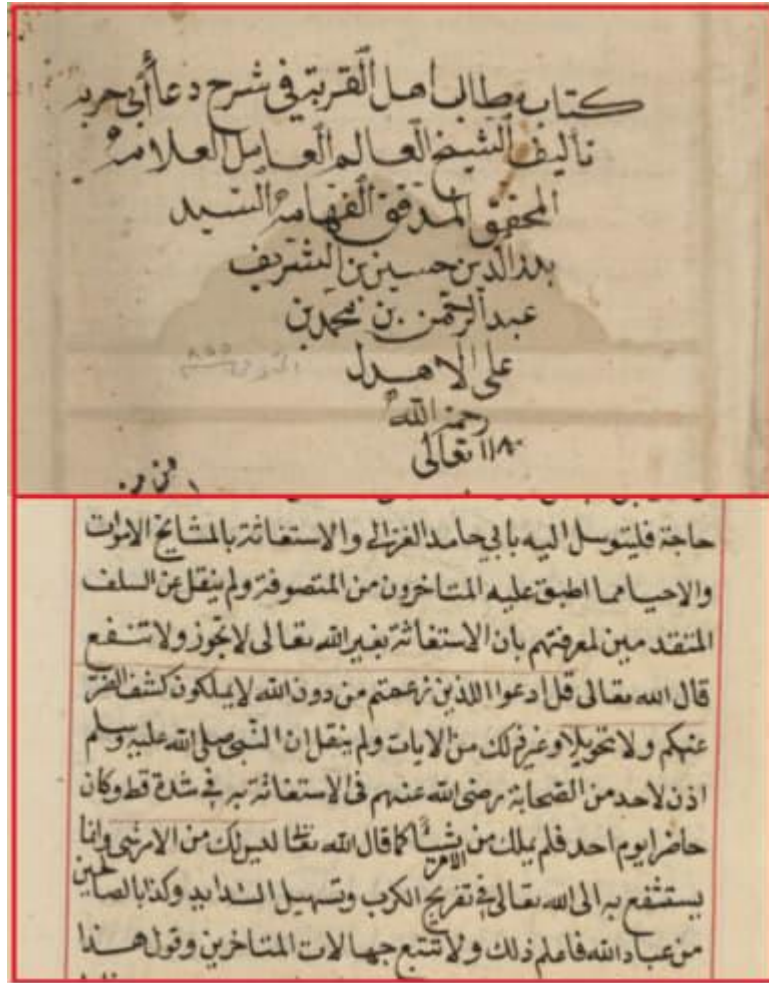 كتاب مطالب اهل القربة في شرح دعاء أبي حربه
تأليف الشيخ العالم العامل العلامة
المحقق المدقق الفهامة السيد
بدر الدين حسين بن الشريف
عبد الرحمن بن محمد بن
علي الاهدل
٨٥٥
رحمه الله
تعالى
حاجة فليتوسل اليه بابي حامد الغزالي والاستغاثة بالمشايخ الاموات
والاحيا مما اطبق عليه المتاخرون من المتصوفة ولم ينقل عن السلف
المتقدمين لمعرفتهم بان الاستغاثة بغير الله تعالى لا تجوز ولا تنفع
قال الله تعالى قل ادعوا اللذين زعمتم من دون الله لا يملكون كشف الضر
عنكم ولا تحويلا وغير ذلك من الايات ولم ينقل ان النبي صلى الله عليه وسلم
اذن لاحد من الصحابة رضي الله عنهم في الاستغاثة به في شدة قط وكان
حاضرا يوم احد فلم يملك من الامر شيئا كما قال الله تعالى ليس لك من الامر شئ وانما
يستشفع به الى الله تعالى في تفريج الكرب وتسهيل الشدايد وكذا بالصالحين
من عباد الله فاعلم ذلك ولا تتبع جهالات المتاخرين وقول هذا